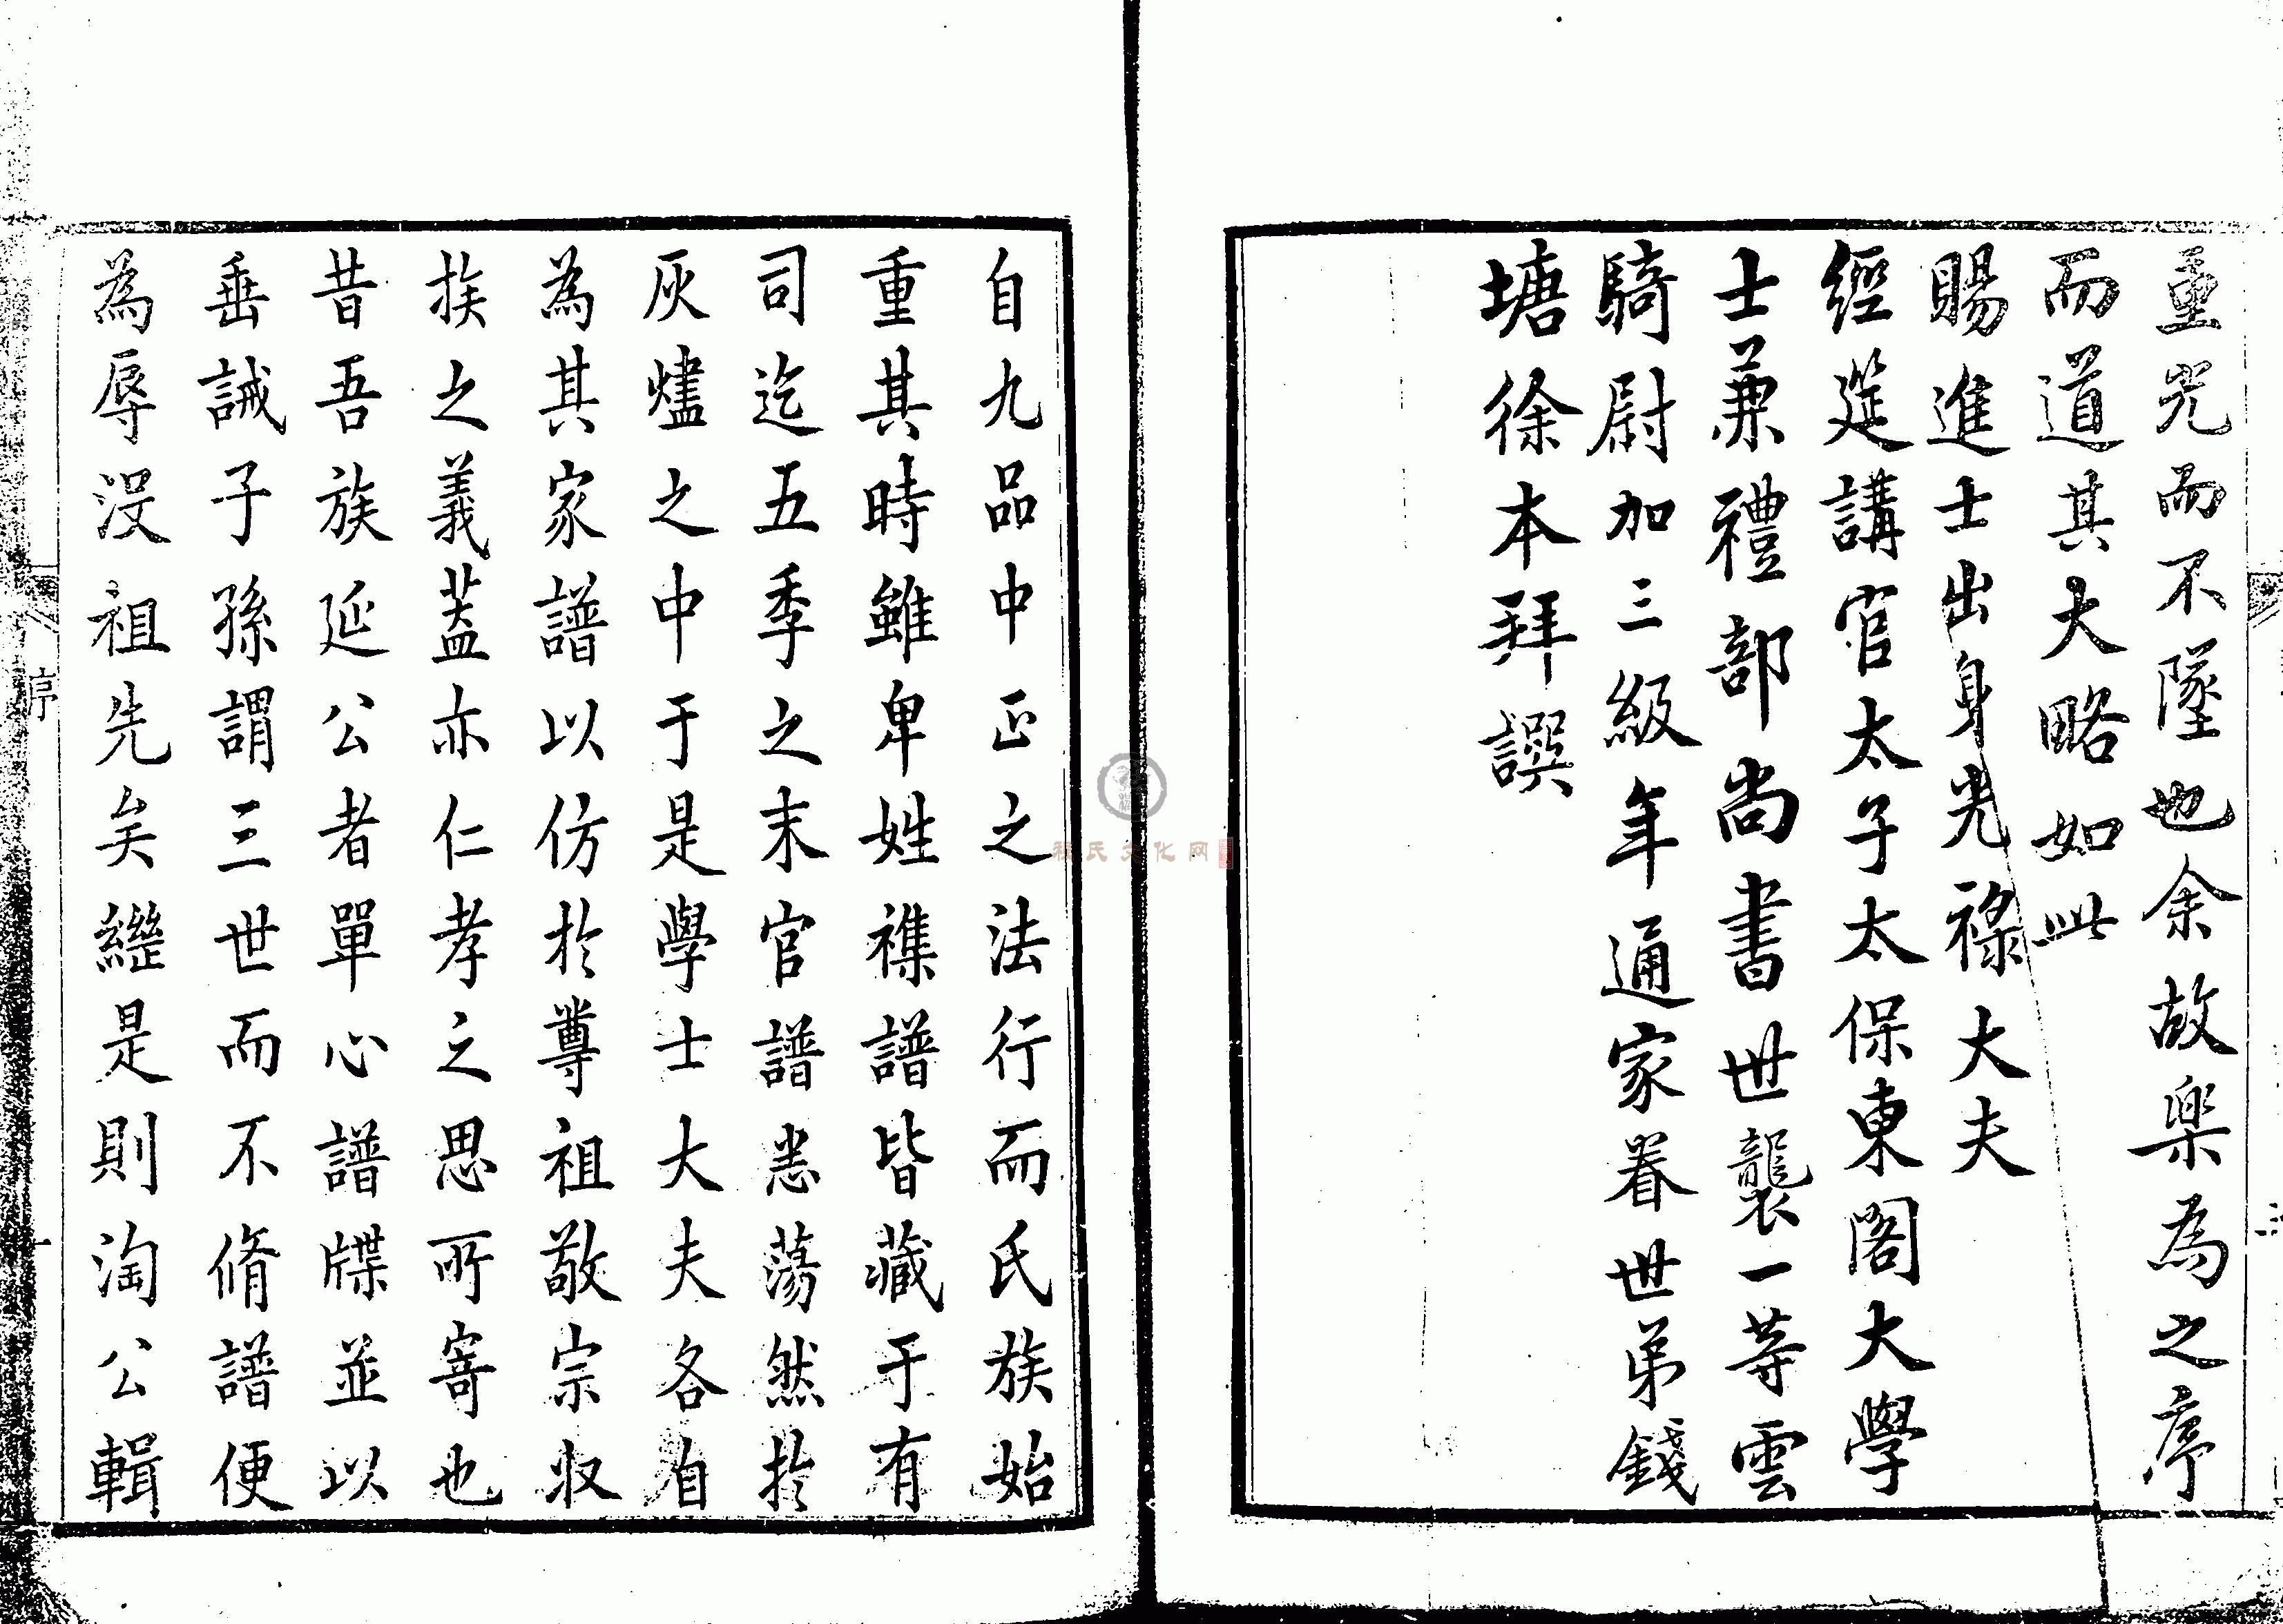 重光而不墜也余故樂為之序
而道其大略如此
賜進士出身光祿大夫
經筵講官太子太保東閣大學
士兼禮部尚書世襲一等雲
騎尉加三級年通家眷世弟錢
塘徐本拜譔
自九品中正之法行而氏族始
重其時雖卑姓襍譜皆藏于有
司迄五季之末官譜悉蕩然於
灰燼之中于是學士大夫各自
為其家譜以仿於尊祖敬宗収
族之義葢亦仁孝之思所寄也
昔吾族延公者單心譜牒並以
垂誡子孫謂三世而不脩譜便
為辱没祖先矣繼是則淘公輯
序
程氏文化网